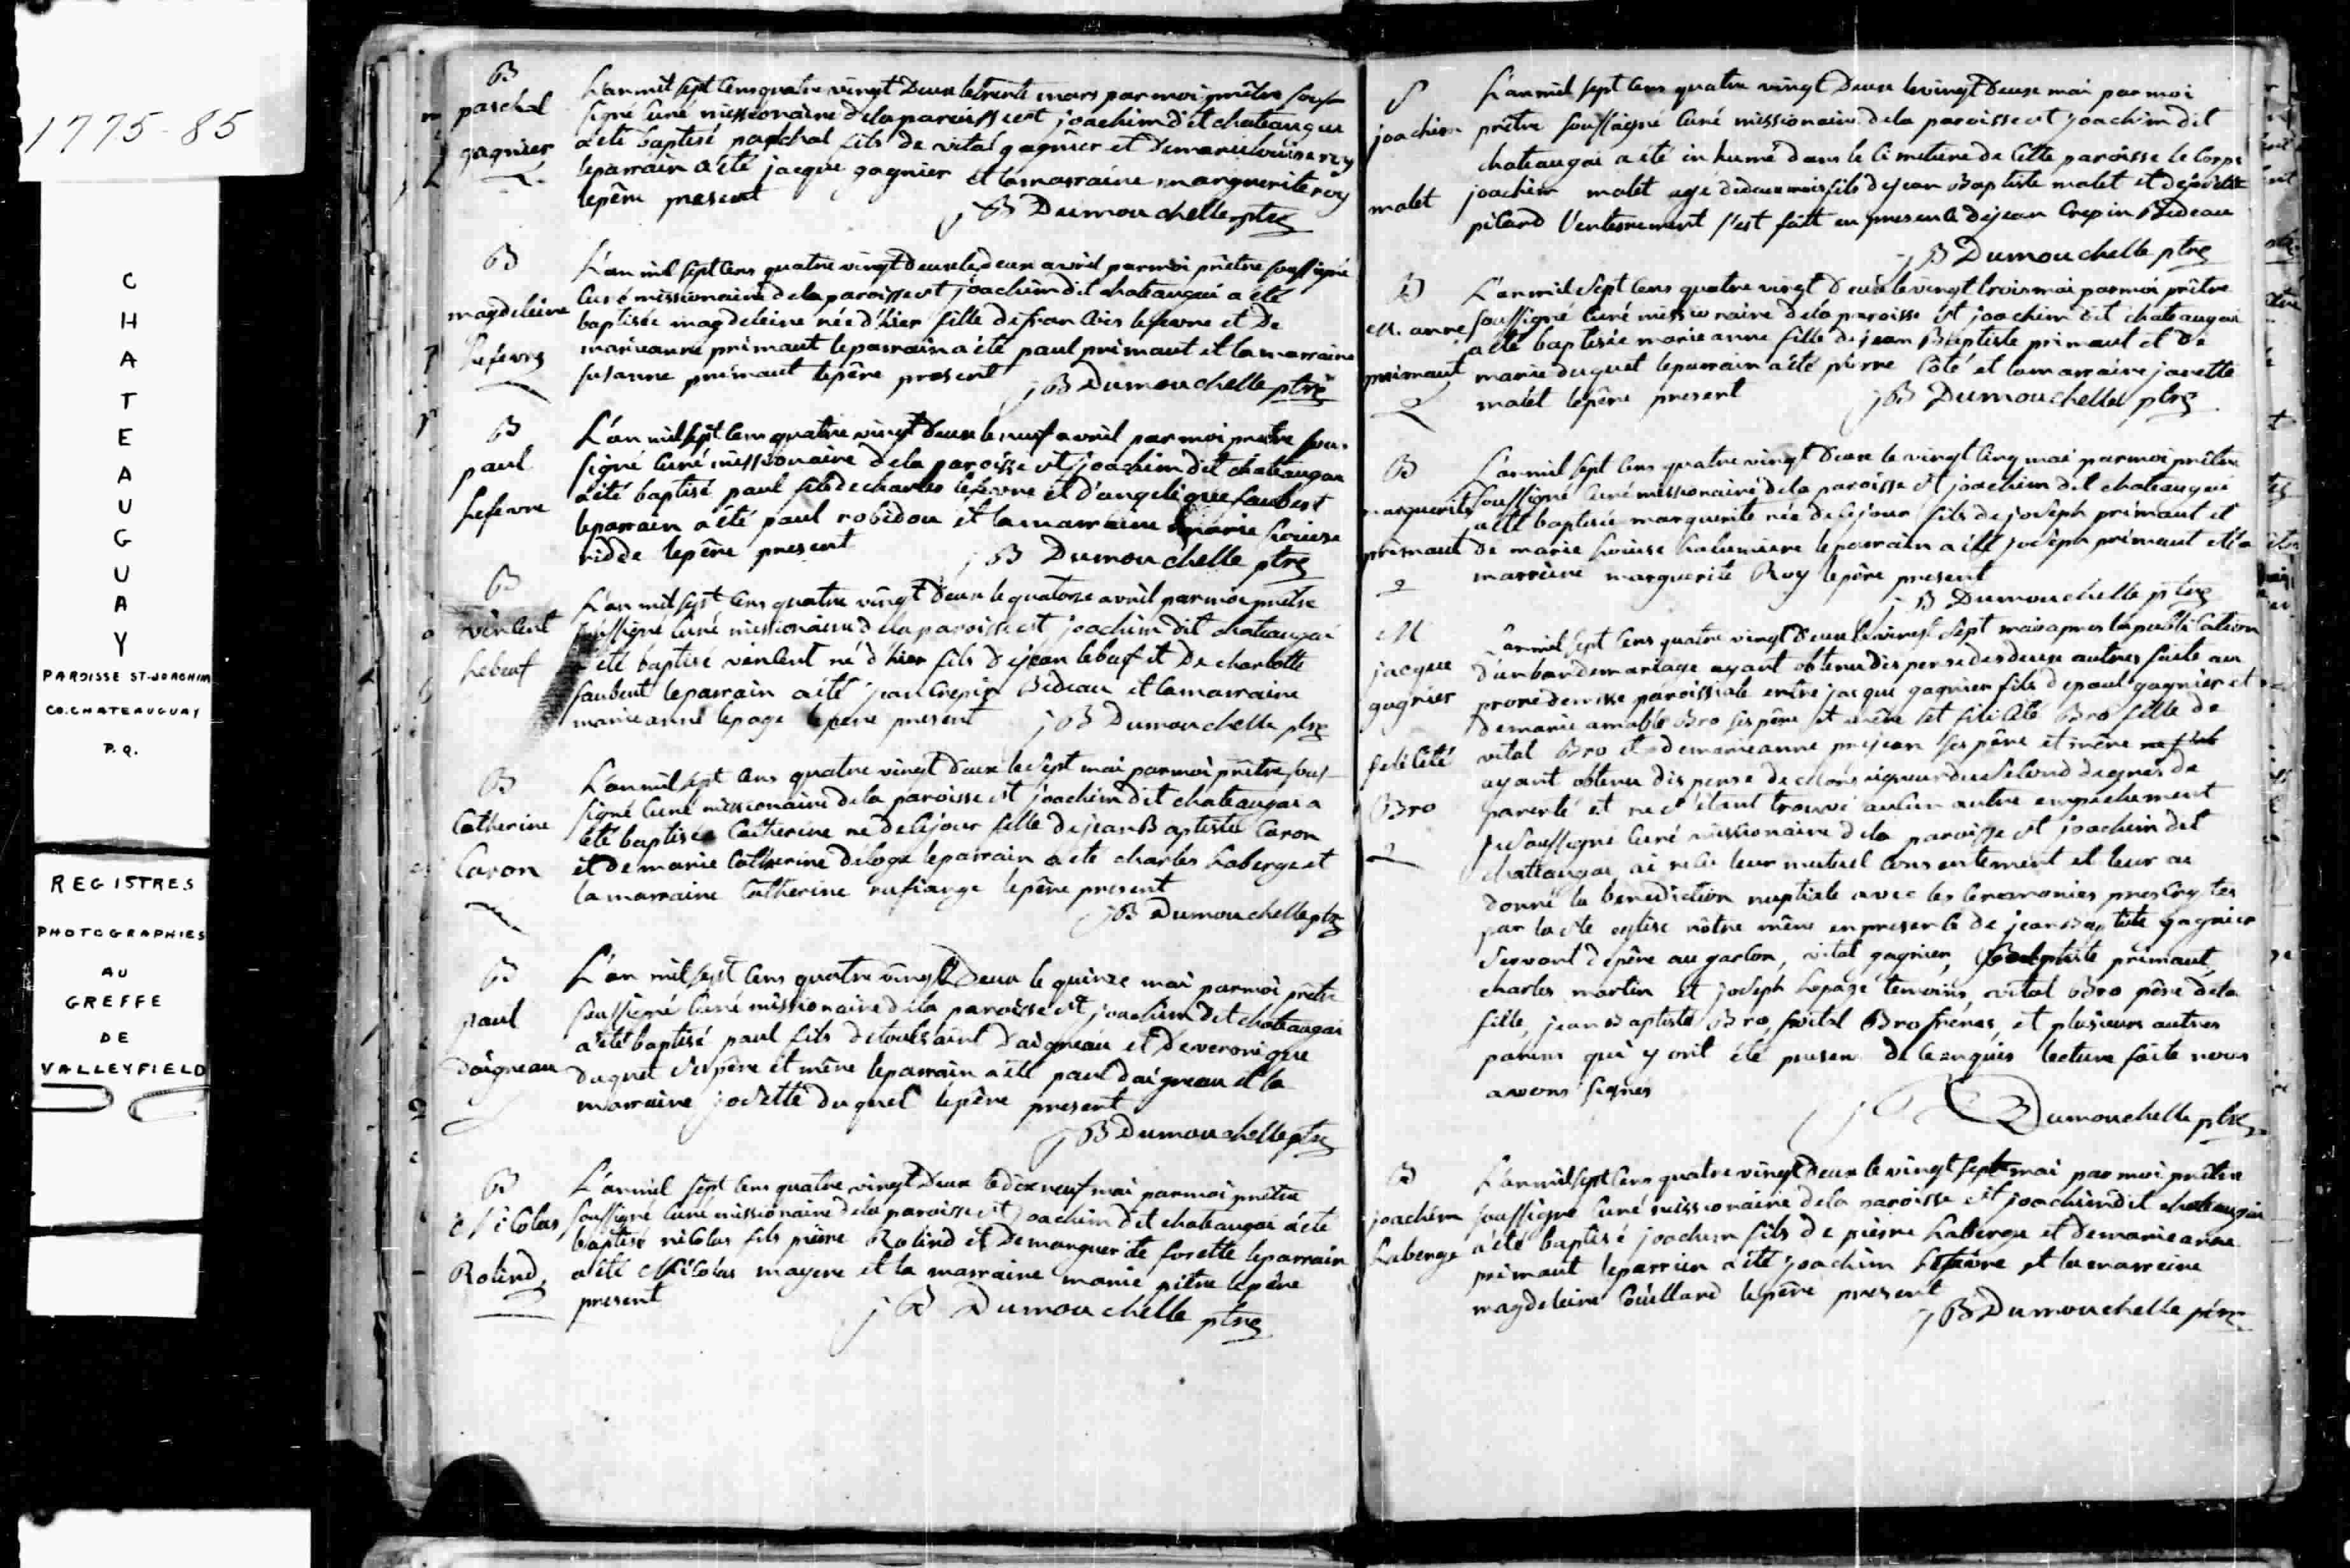 1775-85
CHATEAUGUAY
PAROISSE ST-JOACHIM
CO. CHATEAUGUAY
P.Q.
REGISTRES
PHOTOGRAPHIES
AU
GREFFE
DE
VALLEYFIELD
B
paschal
gagnier
L'an mil sept cens quatre vingt deux le trente mars par moi prêtre sous
signé curé missionaire de la paroisse st joachim dit chateaugai
a été baptisé paschal fils de vital gagnier et de marie louise roy
le parrain a été jacque gagnier et la marraine marguerite roy
le pêre present
j B Dumouchelle ptre
B
magdeleine
Lefevre
L'an mil sept cens quatre vingt deux le deux avril par moi prêtre soussigné
curé missionaire de la paroisse st joachim dit chateaugai a été
baptisée magdeleine née d'hier fille de francois lefevre et de
marieanne primaut le parrain a été paul primaut et la marraine
susanne primaut le pêre present
j B Dumouchelle ptre
B
paul
Lefevre
L'an mil sept cens quatre vingt deux le neuf avril par moi pretre sou-
signé curé missionaire de la paroisse st joachim dit chateaugai
a été baptisé paul fils de charles lefevre et d'angelique faubert
le parrain a été paul robidou et la marraine marie louise
ridde le pêre present
j B Dumouchelle ptre
B
vincent
Lebeuf
L'an mil sept cens quatre vingt deux le quatorze avril par moi prêtre
soussigné curé missionaire de la paroisse st joachim dit chateaugai
a été baptisé vincent né d'hier fils de jean lebeuf et de charlotte
faubert le parrain a été jean Crepin Bedeau et la marraine
marieanne lepage le pere present
j B Dumouchelle ptre
B
Catherine
Caron
L'an mil sept cens quatre vingt deux le sept mai par moi prêtre sous-
signé curé missionaire de la paroisse st joachim dit chateaugai a
été baptisée Catherine né de ce jour fille de jean Baptiste Caron
et de marie Catherine deloge le parrain a été charles Laberge et
la marraine Catherine rufiange le pêre present
j B Dumouchelle ptre
B
paul
Daigneau
L'an mil sept cens quatre vingt Deux le quinze mai par moi prêtre
soussigné curé missionaire de la paroisse st joachim dit chateaugai
a été baptisé paul fils de toussaint Daigneau et de veronique
duquet ses pêre et mêre le parrain a été paul daigneau et la
marraine josette duquet le pêre present
j B Dumouchelle ptre
B
Nicolas
Rolind
L'an mil sept cens quatre vingt deux le dix neuf mai par moi prêtre
soussigné curé missionaire de la paroisse st joachim dit chateaugai a été
baptisé nicolas fils pierre Rolind et de marguerite forette le parrain
a été Nicolas mayere et la marraine marie pitre le pêre
present
j B Dumouchelle ptre
S
joachim
malet
L'an mil sept cens quatre vingt Deux le vingt deux mai par moi
prêtre soussigné curé missionaire de la paroisse st joachim dit
chateaugai a été inhumé dans le Cimetiere de cette paroisse le Corps
joachim malet agé de deux mois fils de jean Baptiste malet et de josette
picard l'enterrement s'est fait en presence de jean Crepin Bedeau
j B Dumouchelle ptre
B
M. anne
primaut
L'an mil sept cens quatre vingt deux le vingt trois mai par moi prêtre
soussigné curé missionaire de la paroisse st joachim dit chateaugai
a été baptisée marie anne fille de jean Baptiste primaut et de
marie duquet le parrain a été pierre Côté et la marraine josette
malet le pêre present
j B Dumouchelle ptre
B
marguerite
primaut
L'an mil sept cens quatre vingt deux le vingt cinq mai par moi prêtre
soussigné curé missionaire de la paroisse st joachim dit chateaugai
a été baptisée marguerite née de ce jour fils de joseph primaut et
de marie louise Lalumiere le parrain a été joseph primaut et la
marraine marguerite Roy le pêre present
j B Dumouchelle ptre
M
jacque
gagnier
felicité
Bro
L'an mil sept cens quatre vingt deux le vingt sept mai apres la publication
d'un ban de mariage ayant obtenu dispense des deux autres faite au
prone de messe paroissiale entre jacque gagnier fils de paul gagnier et
de marie amable Bro ses pêre et mêre et felicité Bro fille de
vital Bro et de marieanne prejean ses pêre et mêre
ayant obtenu dispense de monseigneur du second degrés de
parenté et ne s'étant trouvé aucun autre empêchement
je soussigné curé missionaire de la paroisse st joachim dit
chateaugai ai recu leur mutuel consentement et leur ai
donné la benediction nuptiale avec les ceremonies prescrytes
par la ste eglise nôtre mêre en presence de jean Baptiste gagnier
servant de pêre au garcon, vital gagnier, Baptiste primaut
charles martin et joseph Lepage temoins, vital Bro pêre de la
fille, jean Baptiste Bro, vital Bro freres, et plusieurs autres
parens qui y ont été presens de ce enquis lecture faite nous
avons signés
j B Dumouchelle ptre
B
joachim
Laberge
L'an mil sept cens quatre vingt deux le vingt sept mai par moi prêtre
soussigné curé missionaire de la paroisse st joachim dit chateaugai
a été baptisé joachim fils de pierre Laberge et de marieanne
primaut le parrien a été joachim Lefevre et la marreine
magdeleine Couillard le pêre present
j B Dumouchelle ptre